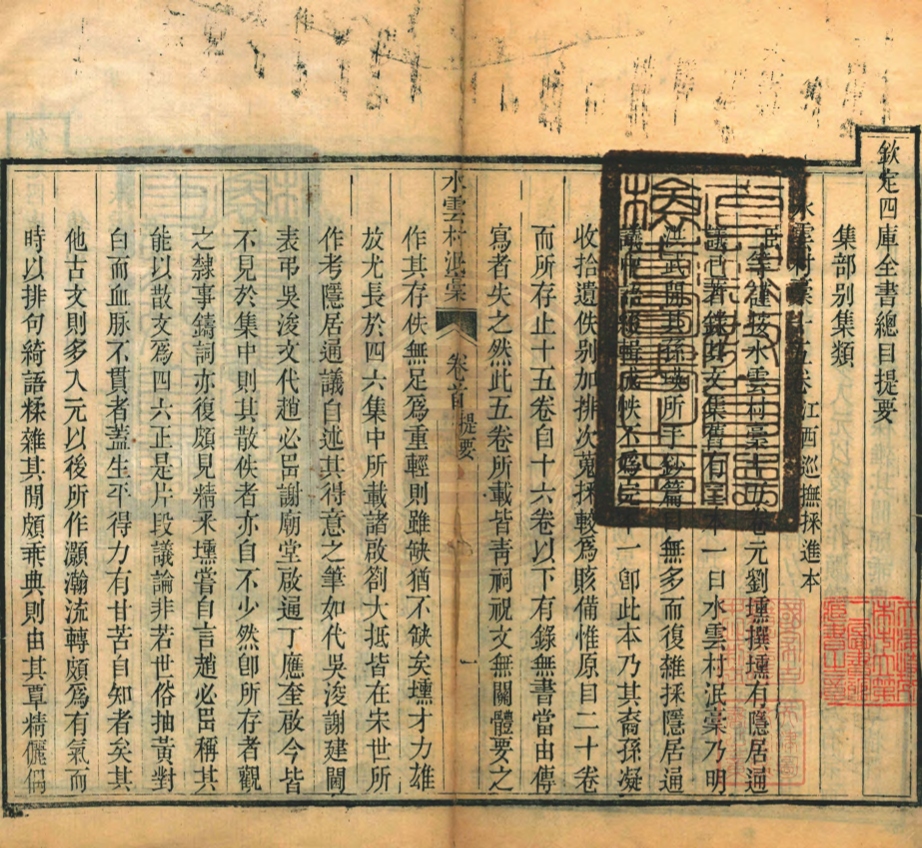 欽定四庫全書總目提要
集部别集類
水雲村稾十五卷 江西巡撫採進本
臣等謹按水雲村稾十五卷元劉壎撰壎有隱居通
議已著錄其文集舊有本一曰水雲村泯稾乃明
洪武間其孫瑛所手鈔篇目無多而復雜採隱居通
議中語綴輯成帙不爲定本一卽此本乃其裔孫凝
收拾遺佚别加排次蒐採較爲賅備惟原目二十卷
而所存止十五卷自十六卷以下有錄無書當由傳
寫者失之然此五卷所載皆靑祠祝文無關體要之
水雲村泯稾 卷首 提要 一
作其存佚無足爲重輕則雖缺猶不缺矣壎才力雄
放尤長於四六集中所載諸啟劄大抵皆在宋世所
作考隱居通議自述其得意之筆如代吳浚謝建閫
表弔吳浚文代趙必岊謝廟堂啟逼丁應奎啟今皆
不見於集中則其散佚者亦自不少然卽所存者觀
之隸事鑄詞亦復頗見精釆壎嘗自言趙必岊稱其
能以散文爲四六正是片段議論非若世俗抽黃對
白而血脉不貫者蓋生平得力有甘苦自知者矣其
他古文則多入元以後所作灝瀚流轉頗爲有氣而
時以排句綺語糅雜其閒頗乖典則由其覃精儷偶